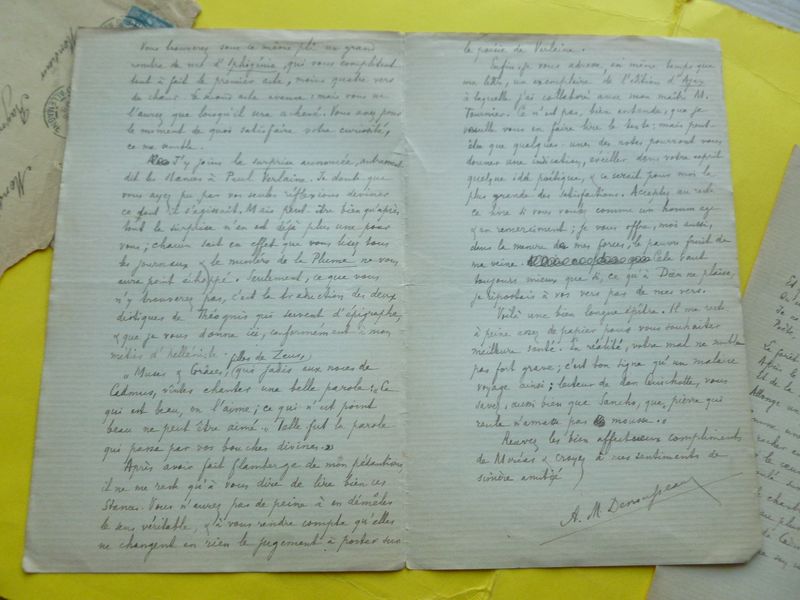 Vous trouverez sous ce même pli un grand
nombre de vers d'Iphigénie, qui vous complètent
tout à fait le premier acte, moins quatre vers
de chœur. Le second acte avance ; mais vous ne
l'aurez que lorsqu'il sera achevé. Vous avez pour
le moment de quoi satisfaire votre curiosité,
ce me semble.
J'y joins la surprise annoncée, autrement
dit les stances à Paul Verlaine. Je doute que
vous ayez pu par vos seules réflexions deviner
ce dont il s'agissait. Mais peut-être bien qu'après
tout la surprise n'en est déjà plus une pour
vous ; chacun sait en effet que vous lisez tous
les journaux, & le numéro de la Plume ne vous
aura point échappé. Seulement, ce que vous
n'y trouverez pas, c'est la traduction des deux
distiques de Théognis qui servent d'épigraphe,
& que je vous donne ici, conformément à mon
métier d'helléniste.
filles de Zeus,
"Muses & Grâces, qui jadis aux noces de
Cadmus, vîntes chanter une belle parole : Ce
qui est beau, on l'aime ; ce qui n'est point
beau ne peut être aimé. Telle fut la parole
qui passa par vos bouches divines."
Après avoir fait flamberge de mon pédantisme,
il ne me reste qu'à vous dire de lire bien ces
Stances. Vous n'aurez pas de peine à en démêler
le sens véritable, & à vous rendre compte qu'elles
ne changent en rien le jugement à porter sur
la poésie de Verlaine.
Enfin je vous adresse, en même temps que
ma lettre, un exemplaire de l'édition d'Ajax
à laquelle j'ai collaboré avec mon maître M.
Tournier. Ce n'est pas, bien entendu, que je
veuille vous en faire lire le texte ; mais peut-
être que quelques-unes des notes pourront vous
donner une indication, éveiller dans votre esprit
quelque idée poétique, & ce serait pour moi la
plus grande des satisfactions. Acceptez au reste
ce livre si vous voulez comme un hommage
& un remerciement ; je vous offre, moi aussi,
dans la mesure de mes forces, le pauvre fruit de
ma veine. Cela vaut
toujours mieux que si, ce qu'à Dieu ne plaise,
je ripostais à vos vers par de mes vers.
Voilà une bien longue épître. Il me reste
à peine assez de papier pour vous souhaiter
meilleure santé. En réalité, votre mal ne semble
pas fort grave ; c'est bon signe qu'un malade
voyage ainsi ; lecteur de don Quichotte, vous
savez, aussi bien que Sancho, que, pierre qui
roule n'amasse pas mousse.
Recevez les bien affectueux compliments
de Moréas & croyez à mes sentiments de
sincère amitié
A. M. Desrousseaux